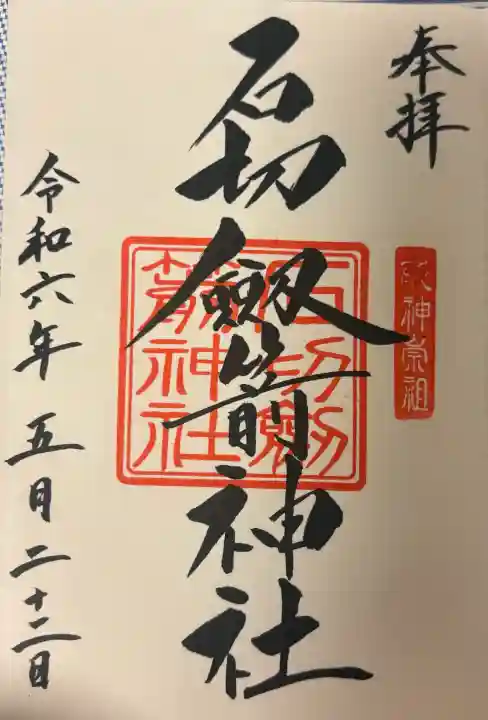 奉拝
敬神崇祖
石切劔箭神社
石切劔
箭神社
令和六年 五月二十二日